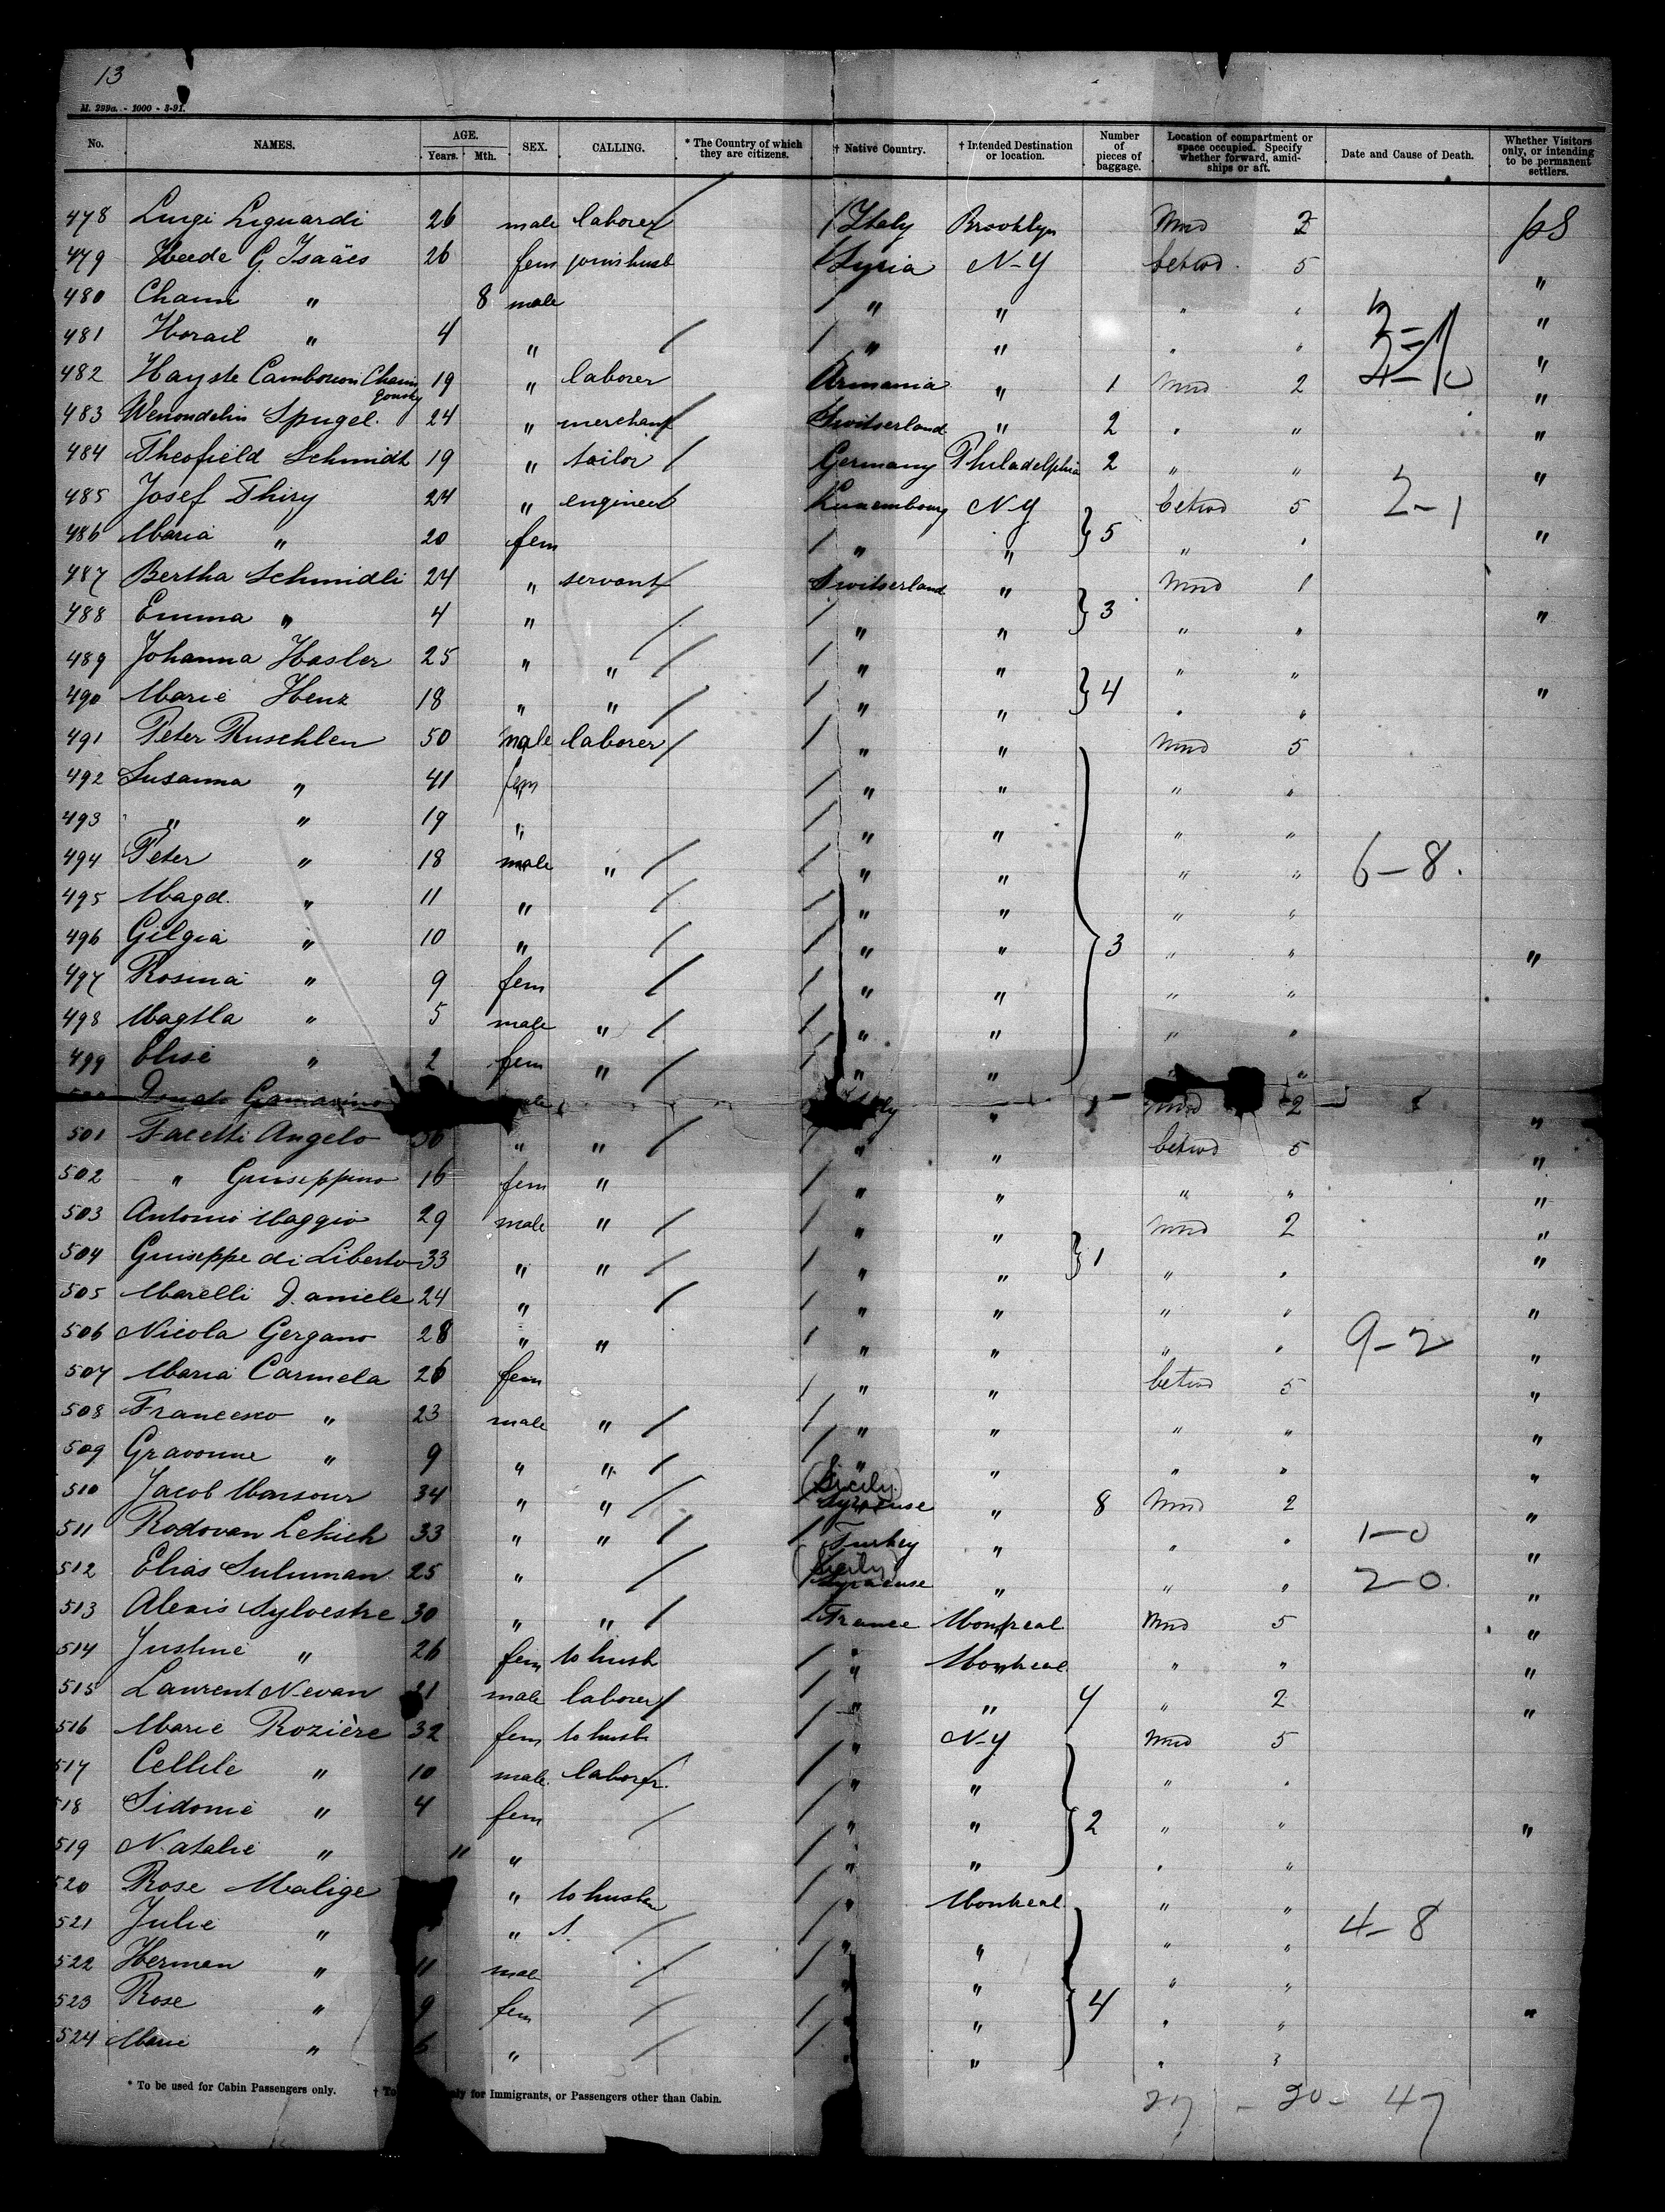 13
M. 299a. - 1000 - 3-91.
No. NAMES. AGE. Years. Mth. SEX. CALLING. * The Country of which they are citizens. † Native Country. † Intended Destination or location. Number of pieces of baggage. Location of compartment or space occupied. Specify whether forward, amidships or aft. Date and Cause of Death. Whether Visitors only, or intending to be permanent settlers.
478 Luigi Liguardi 26 male laborer Italy Brooklyn Mnd 2 pS
479 G. Isaäcs 26 fem joins husb Syria N-Y betwd 5 "
480 Chann " 8 male " " " " "
481 Horail " 4 " " " " " "
482 Hayste Cambouon 19 " laborer Armania " 1 Mnd 2 "
483 Wenondelin Spugel. 24 " merchant Switserland " 2 " " "
484 Theofield Schmidt 19 " tailor Germany Philadelphia 2 " " "
485 Josef Thiry 24 " engineer Luxembourg N-Y betwd 5 2-1
486 Maria " 20 fem " " } 5 " " "
487 Bertha Schmidli 24 " servant Switserland " Mnd 1
488 Emma " 4 " " " } 3 " " "
489 Johanna Hasler 25 " " " " " "
490 Marie Henz 18 " " " " } 4 " " "
491 Peter Ruschlen 50 male laborer " " Mnd 5
492 Susanna " 41 fem " " " "
493 " " 19 " " " " "
494 Peter " 18 male " " " " " 6-8.
495 Magd. " 11 " " " " "
496 Gilgia " 10 " " " } 3 " " "
497 Rosina " 9 fem " " " "
498 Magtla " 5 male " " " " "
499 Elise " 2 fem " " " " "
Donato " 2 "
501 Facetti Angelo 30 " " " " betwd 5 "
502 " Guiseppino 16 fem " " " " " "
503 Antonio Maggio 29 male " " " Mnd 2 "
504 Guiseppe di Liberto 33 " " " " } 1 " " "
505 Marelli Daniele 24 " " " " " "
506 Nicola Gergano 28 " " " " " " 9-2 "
507 Maria Carmela 26 fem " " betwd 5 "
508 Francesco " 23 male " " " " " "
509 Gravonne " 9 " " " " " " "
510 Jacob Mansour 34 " " (Sicily) Syracuse " 8 Mnd 2 "
511 Rodovan Lekich 33 " " Turkey " " " 1-0 "
512 Elias Suluman 25 " (Sicily) Syracuse " " " 2-0. "
513 Alexis Sylvestre 30 " " France Montreal Mnd 5 "
514 Justine " 26 fem to husb " Montreal " " "
515 Laurent Nevan 21 male laborer " " 4 " 2 "
516 Marie Rozière 32 fem to husb " N-Y Mnd 5
517 " 10 male. laborer. " " " "
518 Sidonie " 4 fem " " } 2 " " "
519 Natalie " 11 " " " " "
520 Rose Malige " to husb " Montreal " "
521 Julie " " " " " " 4-8
522 Herman " 11 male " " " "
523 Rose " 9 fem " " } 4 " " "
524 Marie " 6 " " " " "
* To be used for Cabin Passengers only. † To for Immigrants, or Passengers other than Cabin.
27 - 20 - 47